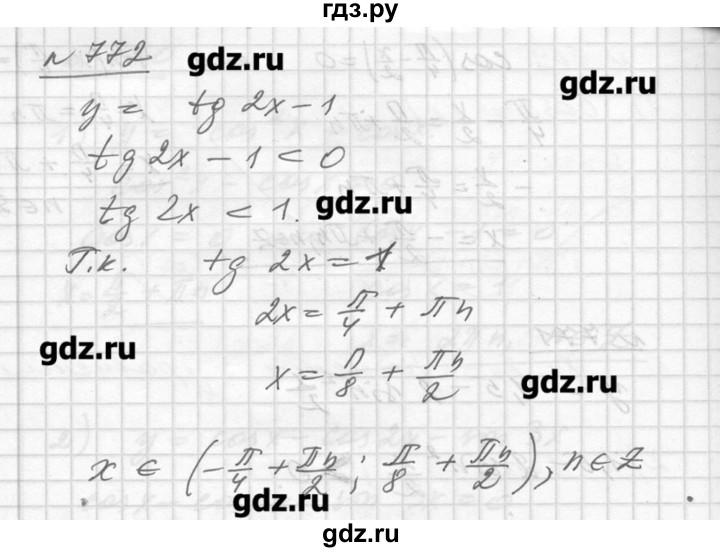 гдз.ру
№ 772
gdz.ru
gdz.ru
y = tg 2x - 1
tg 2x - 1 < 0
tg 2x < 1.
gdz.ru
Т.к. tg 2x = 1
2x = π/4 + πn
gdz.ru
x = π/8 + πn/2
gdz.ru
x ∈ (-π/4 + πn/2 ; π/8 + πn/2), n ∈ Z
gdz.ru
gdz.ru